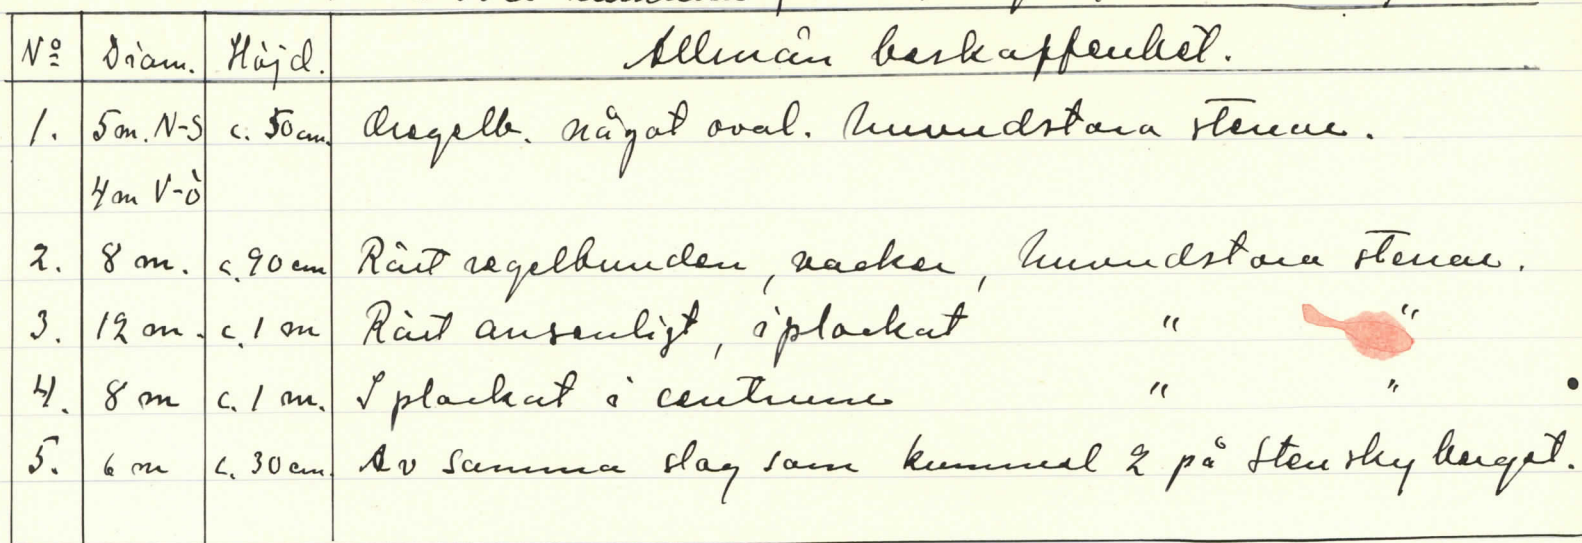 Nº Diam. Höjd. Allmän beskaffenhet.
1. 5m. N-S c. 50 cm. Oregelb. något oval. huvudstora stenar.
4 m V-Ö
2. 8 m. c. 90 cm Rätt regelbunden, vacker, huvudstora stenar.
3. 12 m. c. 1 m Rätt ansenligt, iplockat " "
4. 8 m c. 1 m. I plockat i centrum " "
5. 6 m c. 30 cm. Av samma slag som kummel 2 på Stenskyberget.